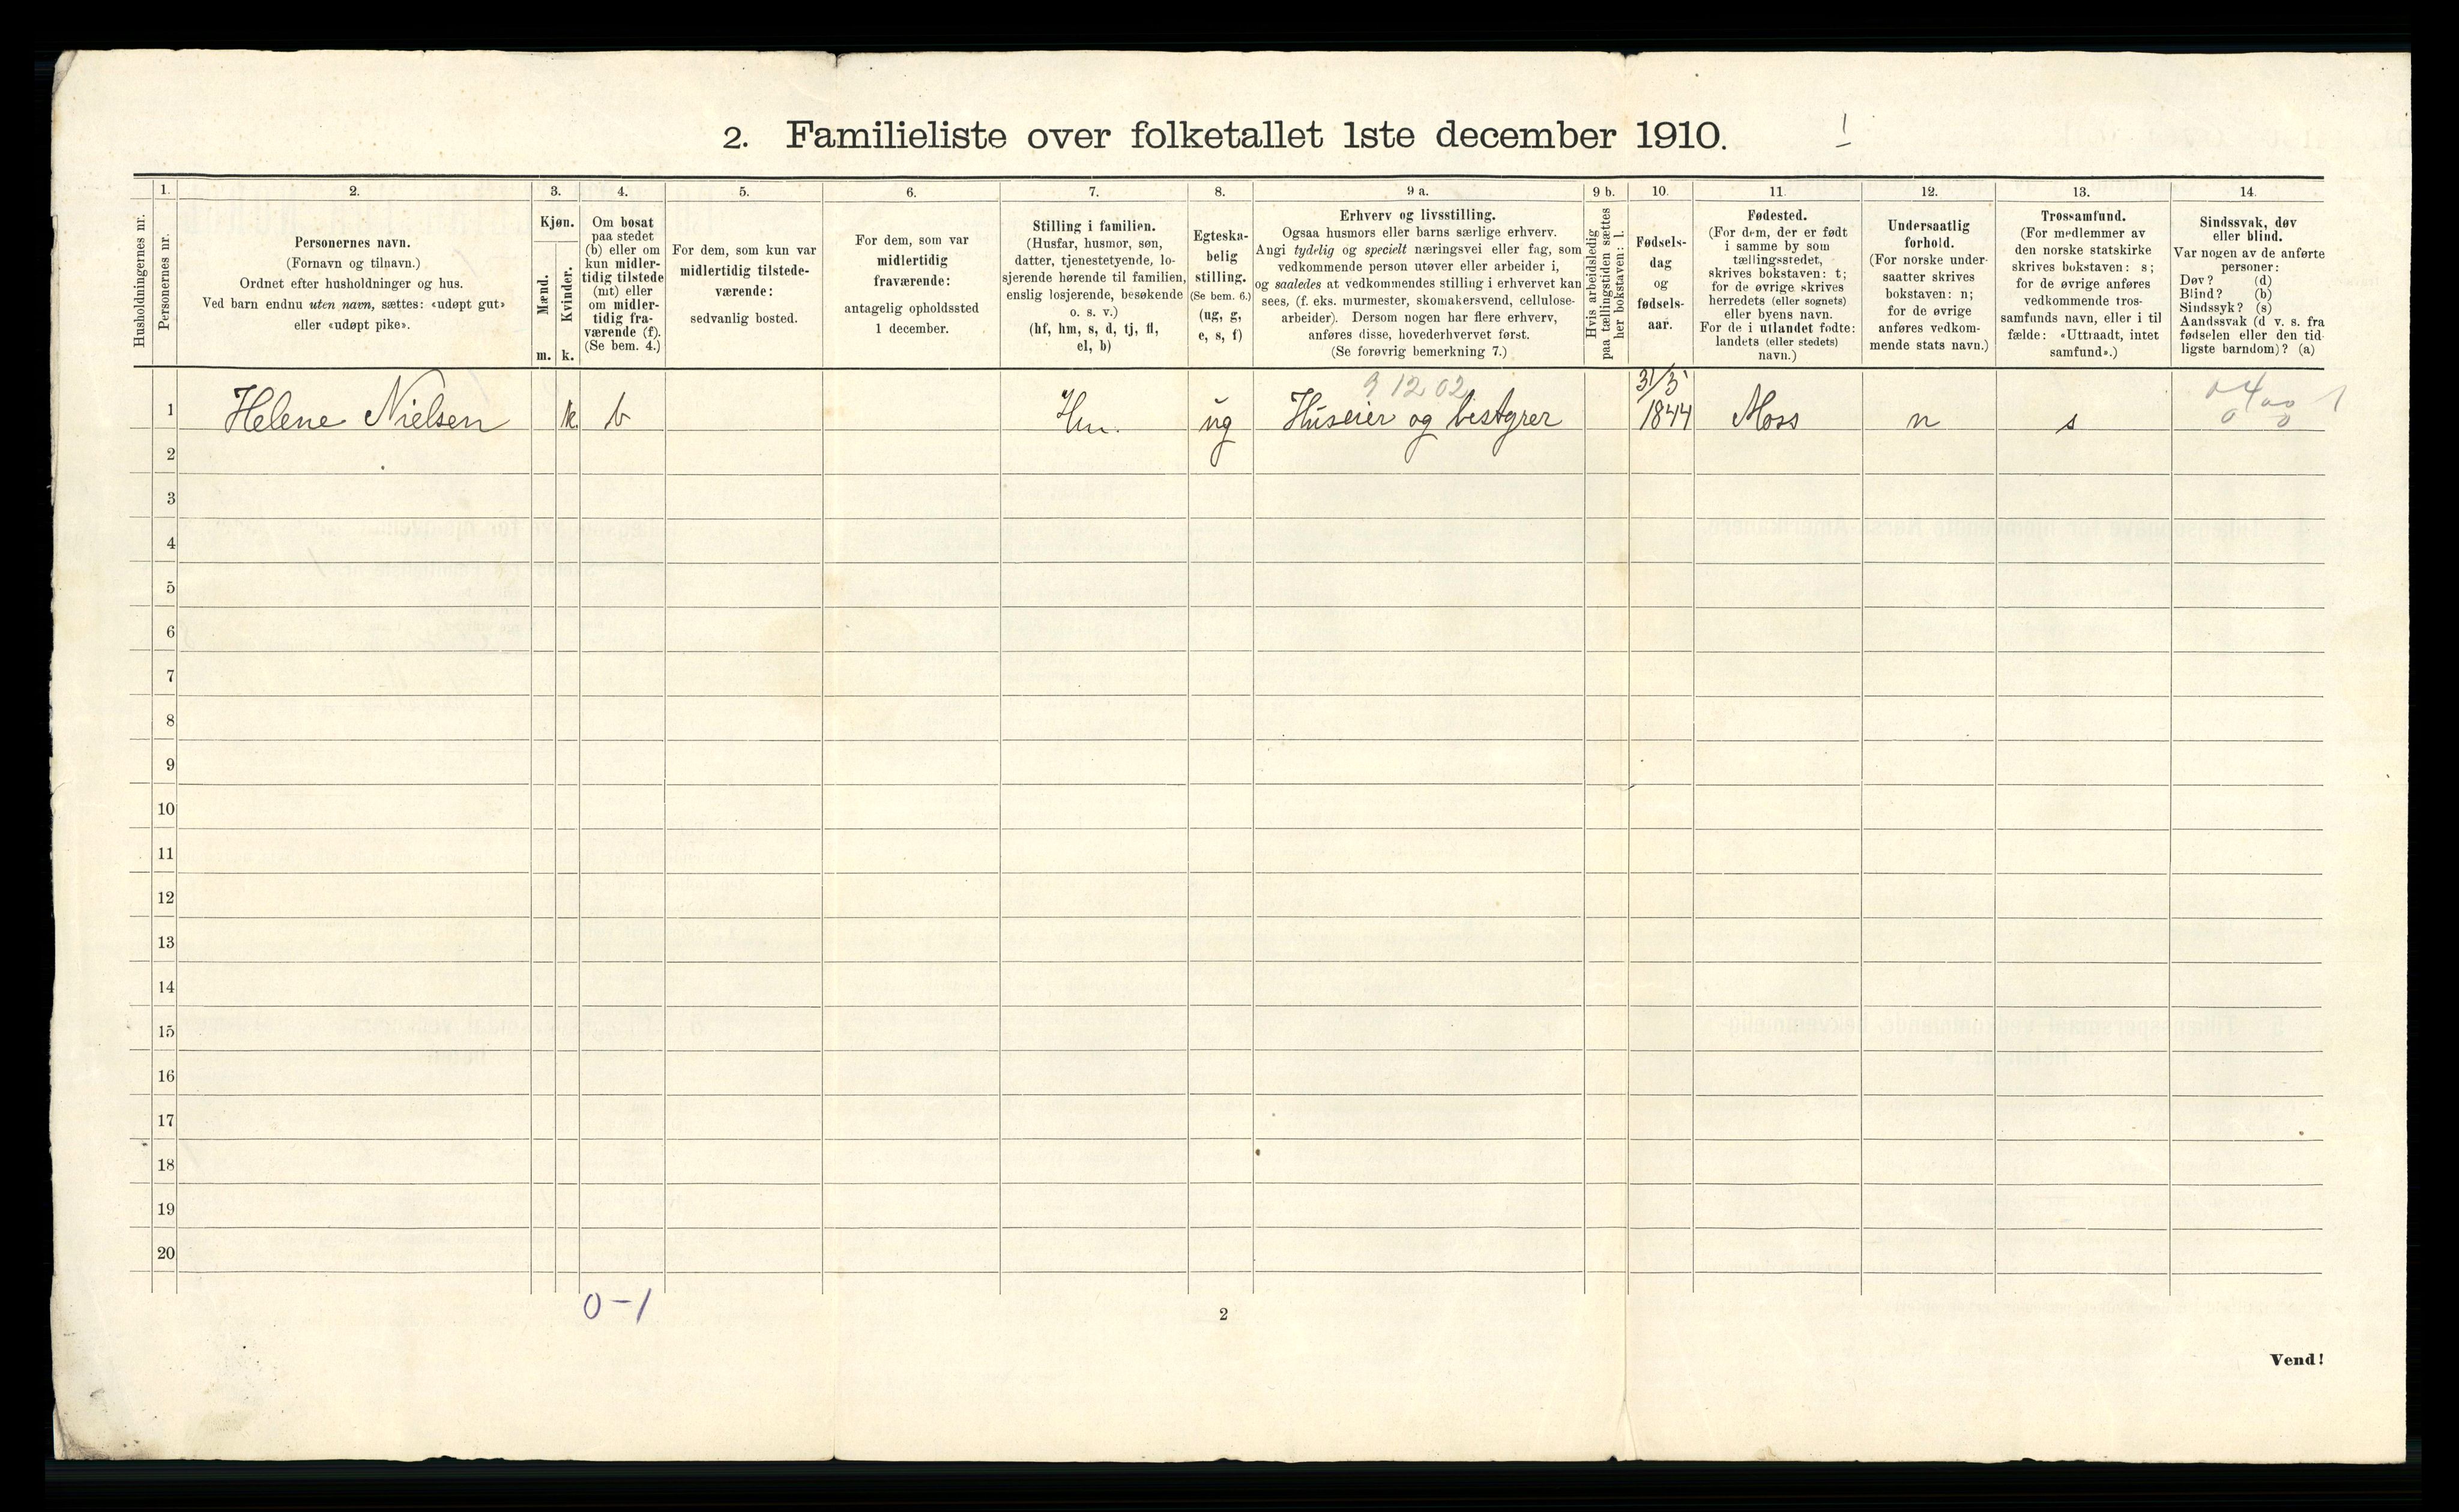 2. Familieliste over folketallet 1ste december 1910.
1
1.
2.
3.
4.
5.
6.
7.
8.
9 a.
9 b.
10.
11.
12.
13.
14.
Husholdningernes nr.
Personernes nr.
Personernes navn.
(Fornavn og tilnavn.)
Ordnet efter husholdninger og hus.
Ved barn endnu uten navn, sættes: «udøpt gut»
eller «udøpt pike».
Kjøn.
Mænd.
Kvinder.
m.
k.
Om bosat
paa stedet
(b) eller om
kun midler-
tidig tilstede
(mt) eller
om midler-
tidig fra-
værende (f).
(Se bem. 4.)
For dem, som kun var
midlertidig tilstede-
værende:
sedvanlig bosted.
For dem, som var
midlertidig
fraværende:
antagelig opholdssted
1 december.
Stilling i familien.
(Husfar, husmor, søn,
datter, tjenestetyende, lo-
sjerende hørende til familien,
enslig losjerende, besøkende
o. s. v.)
(hf, hm, s, d, tj, fl,
el, b)
Egteska-
belig
stilling.
(Se bem. 6.)
(ug, g,
e, s, f)
Erhverv og livsstilling.
Ogsaa husmors eller barns særlige erhverv.
Angi tydelig og specielt næringsvei eller fag, som
vedkommende person utøver eller arbeider i,
og saaledes at vedkommendes stilling i erhvervet kan
sees, (f. eks. murmester, skomakersvend, cellulose-
arbeider). Dersom nogen har flere erhverv,
anføres disse, hovederhvervet først.
(Se forøvrig bemerkning 7.)
Hvis arbeidsledig
paa tællingstiden sættes
her bokstaven: l.
Fødsels-
dag
og
fødsels-
aar.
Fødested.
(For dem, der er født
i samme by som
tællingsstedet,
skrives bokstaven: t;
for de øvrige skrives
herredets (eller sognets)
eller byens navn.
For de i utlandet fødte:
landets (eller stedets)
navn.)
Undersaatlig
forhold.
(For norske under-
saatter skrives
bokstaven: n;
for de øvrige
anføres vedkom-
mende stats navn.)
Trossamfund.
(For medlemmer av
den norske statskirke
skrives bokstaven: s;
for de øvrige anføres
vedkommende tros-
samfunds navn, eller i til
fælde: «Uttraadt, intet
samfund».)
Sindssvak, døv
eller blind.
Var nogen av de anførte
personer:
Døv? (d)
Blind? (b)
Sindssyk? (s)
Aandssvak (d v. s. fra
fødselen eller den tid-
ligste barndom)? (a)
9 12 02
31/5
1 Helene Nielsen k b Hm. ug Huseier og bestyrer 1844 Moss n s
2
3
4
5
6
7
8
9
10
11
12
13
14
15
16
17
18
19
20
0-1
2
Vend!